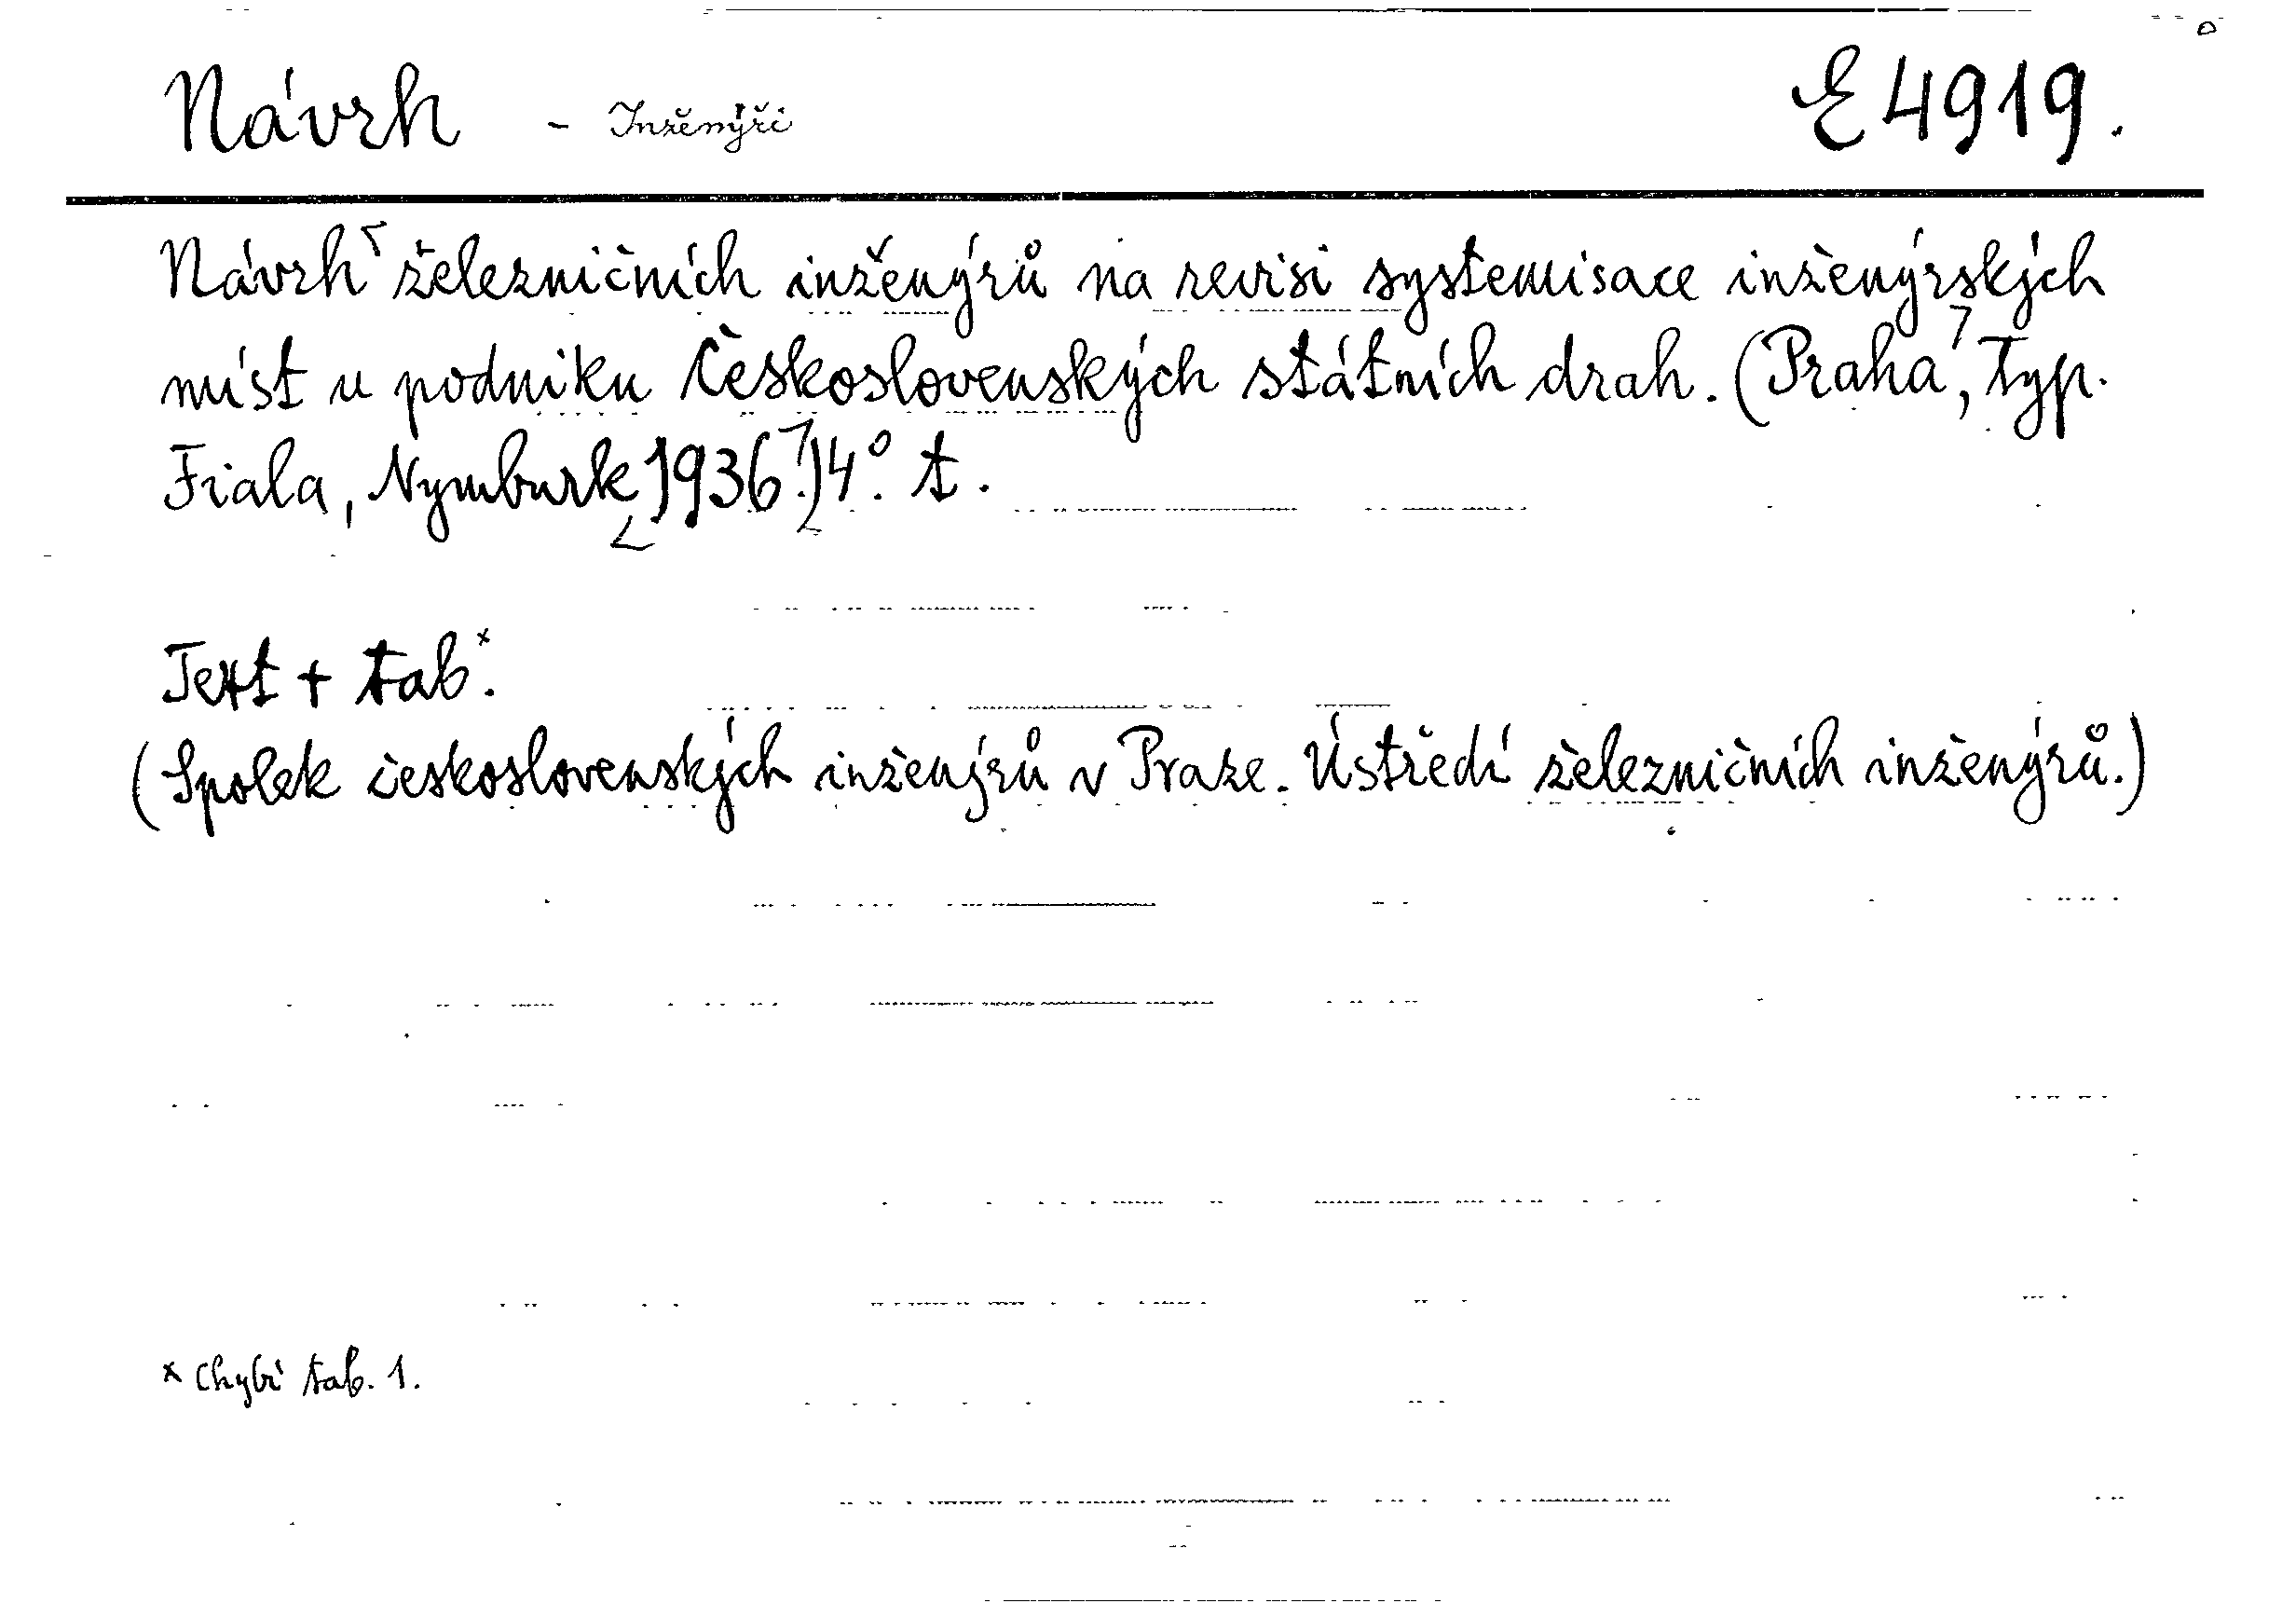 Návrh - Inženýři E 4919.
Návrh železničních inženýrů na revisi systemisace inženýrských
míst u podniku Československých státních drah. (Praha, Typ.
Fiala, Nymburk 1936.) 4°. t.
Text + tab.x
(Spolek československých inženýrů v Praze. Ústředí železničních inženýrů.)
x Chybí tab. 1.